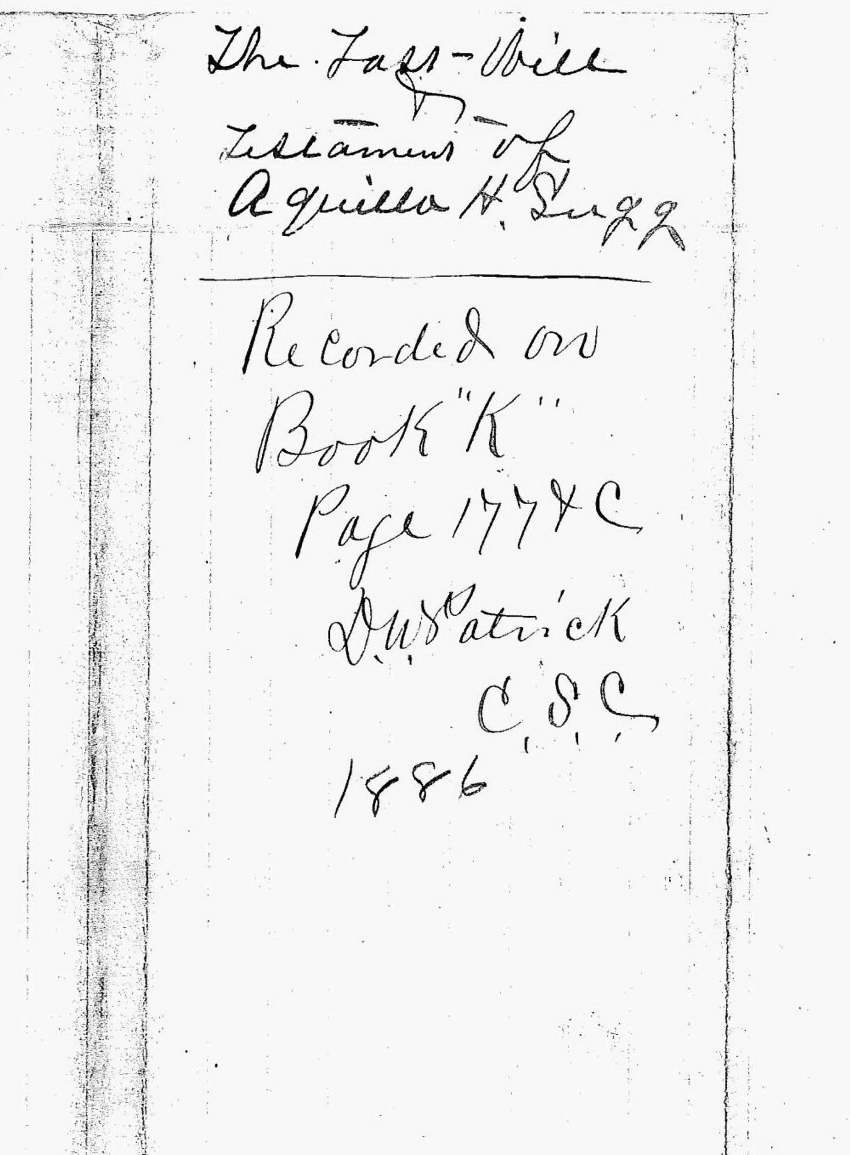 The Last Will
&
Testament of
Aquilla H. Sugg
Recorded on
Book "K"
Page 177 & C
D.W. Patrick
C.S.C.
1886